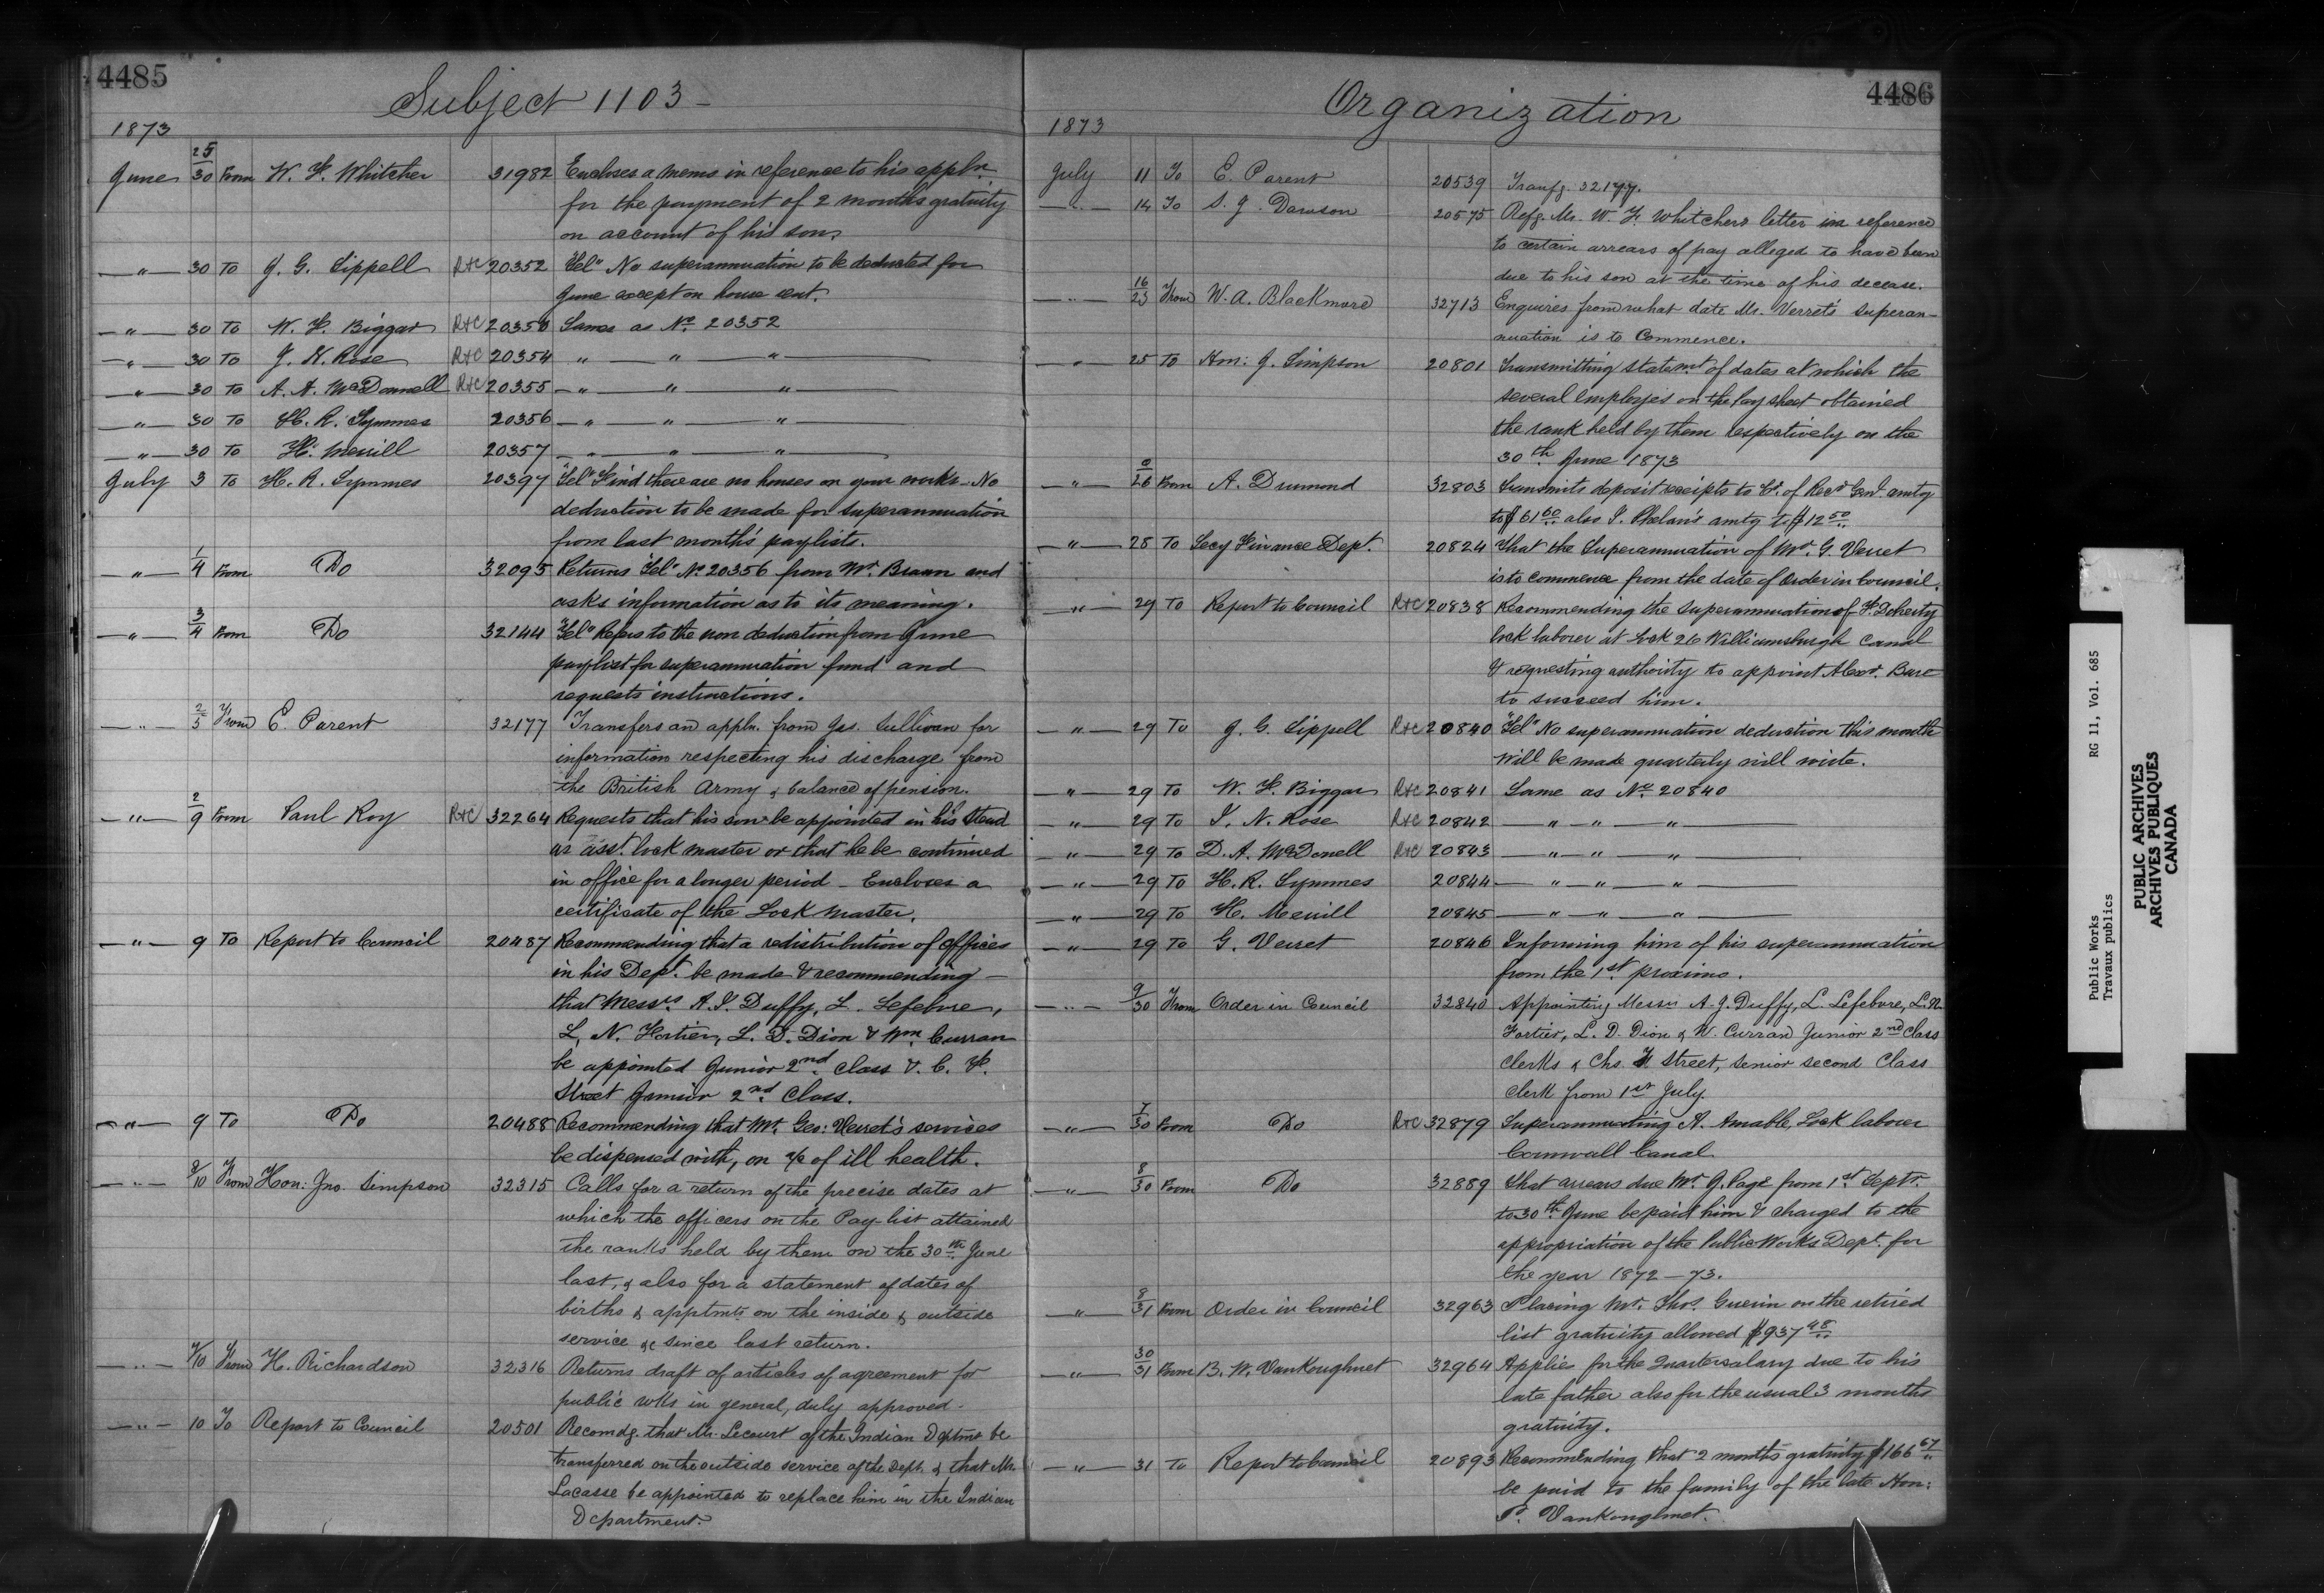 4485
Subject 1103 -
1873
June 25/30 From W. F. Whitcher 31982 Encloses a memo in reference to his appln.
for the payment of 2 months gratuity
on account of his son.
" 30 To J. G. Sippell R&C 20352 "Tel" No superannuation to be deducted for
June except on house rent.
" 30 To W. F. Biggar R&C 20353 Same as No. 20352
" 30 To J. N. Rose R&C 20354 " " "
" 30 To A. A. McDonnell R&C 20355 " " "
" 30 To H. R. Symmes 20356 " " "
" 30 To H. Merrill 20357 " " "
July 3 To H. R. Symmes 20397 "Tel" Find there are no houses on your works. No
deduction to be made for superannuation
from last month's paylists.
" 1/4 From Do 32095 Returns "Tel" No. 20356 from Mr. Braun and
asks information as to its meaning.
" 3/4 From Do 32144 "Tel" Refers to the non deduction from June
paylist for superannuation fund and
requests instructions.
" 2/5 From E. Parent 32177 Transfers an appln. from Jas. Sullivan for
information respecting his discharge from
the British Army & balance of pension.
" 2/9 From Paul Roy R&C 32264 Requests that his son be appointed in his stead
as asst. lock master or that he be continued
in office for a longer period - Encloses a
certificate of the Lock Master.
" 9 To Report to Council 20487 Recommending that a redistribution of offices
in his Dept. be made & recommending -
that Messrs. A. J. Duffy, L. Lefebvre,
L. N. Fortier, L. D. Dion & Wm. Curran
be appointed Junior 2nd Class & C. F.
Street Junior 2nd Class.
" 9 To Do 20488 Recommending that Mr. Geo: Verret's services
be dispensed with, on a/c of ill health.
" 9/10 From Hon: Jno. Simpson 32315 Calls for a return of the precise dates at
which the officers on the Pay-list attained
the ranks held by them on the 30th June
last, & also for a statement of dates of
births & apptmts on the inside & outside
service &c since last return.
" 9/10 From H. Richardson 32316 Returns draft of articles of agreement for
public wks in general, duly approved.
" 10 To Report to Council 20501 Recomdg. that Mr. Lecourt of the Indian Dptmt be
transferred on the outside service of the Dept. & that Mr.
Lacasse be appointed to replace him in the Indian
Department.
4486
Organization
1873
July 11 To E. Parent 20539 Transfg. 32177.
" 14 To S. J. Dawson 20575 Refg. Mr. W. F. Whitchers letter in reference
to certain arrears of pay alleged to have been
due to his son at the time of his decease.
" 16/23 From W. A. Blackmore 32713 Enquires from what date Mr. Verret's superan-
nuation is to commence.
" 25 To Hon: J. Simpson 20801 Transmitting statemt of dates at which the
several employés on the pay sheet obtained
the rank held by them respectively on the
30th June 1873
" 26 From A. Drumond 32803 Transmits deposit receipts to Ct. of Recr Genl. amtg
to $61 60 also P. Phelan's amtg to $12 50
" 28 To Secy Finance Dept. 20824 That the Superannuation of Mr. G. Verret
is to commence from the date of Order in Council.
" 29 To Report to Council R&C 20838 Recommending the superannuation of F. Doherty
lock laborer at Lock 26 Williamsburgh Canal
& requesting authority to appoint Alexr. Bare
to succeed him.
" 29 To J. G. Sippell R&C 20840 "Tel" No superannuation deduction this month
will be made quarterly will write.
" 29 To W. F. Biggar R&C 20841 Same as No. 20840
" 29 To J. N. Rose R&C 20842 " " "
" 29 To D. A. McDonell R&C 20843 " " "
" 29 To H. R. Symmes 20844 " " "
" 29 To H. Merrill 20845 " " "
" 29 To G. Verret 20846 Informing him of his superannuation
from the 1st. proximo.
" 9/30 From Order in Council 32840 Appointing Messrs A. J. Duffy, L. Lefebvre, L. N.
Fortier, L. D. Dion & W. Curran Junior 2nd Class
Clerks & Chs. F. Street, senior second Class
clerk from 1st July
" 7/30 From Do R&C 32879 Superannuating A. Amable, Lock laborer
Cornwall Canal.
" 8/30 From Do 32889 That arrears due Mr. J. Page from 1st. Septr.
to 30th June be paid him & charged to the
appropriation of the Public Works Dept. for
the year 1872-73.
" 8/31 From Order in Council 32963 Placing Mr. Thos. Guerin on the retired
list gratuity allowed $937 48
" 30/31 From B. W. VanKoughnet 32964 Applies for the Quarter salary due to his
late father also for the usual 3 months
gratuity.
" 31 To Report to Council 20893 Recommending that 2 months gratuity $166 67
be paid to the family of the late Hon:
P. VanKoughnet.
Public Works RG 11, Vol. 685
Travaux publics
PUBLIC ARCHIVES
ARCHIVES PUBLIQUES
CANADA